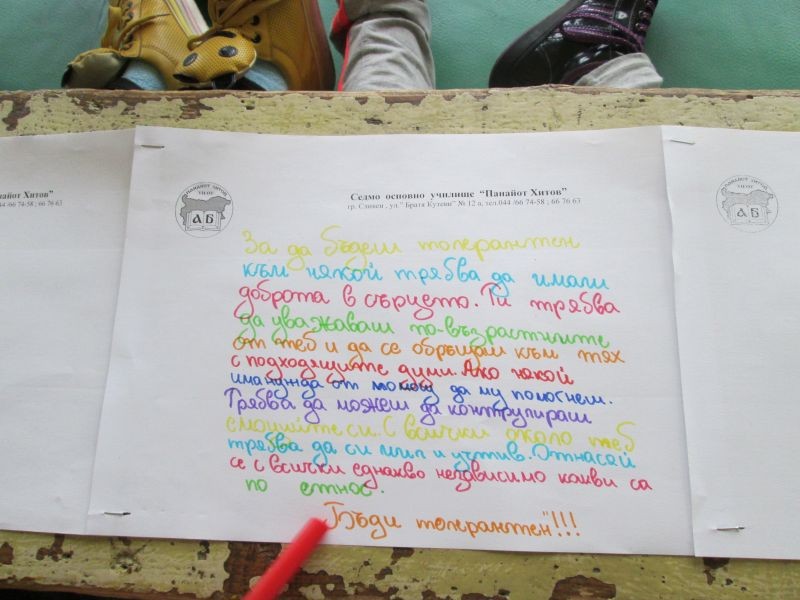 Седмо основно училище "Панайот Хитов"
гр. Сливен , ул." Братя Кутеви" № 12 а, тел.044 /66 74-58 ; 66 76 63
ПАНАЙОТ ХИТОВ
АБ
За да бъдеш толерантен
към някой трябва да имаш
доброта в сърцето. Ти трябва
да уважаваш по-възрастните
от теб и да се обръщаш към тях
с подходящите думи. Ако някой
има нужда от помощ да му помогнеш.
Трябва да можеш да контролираш
емоциите си. С всички около теб
трябва да си мил и учтив. Отнасяй
се с всички еднакво независимо какви са
по етнос.
"Бъди толерантен"!!!
найот Хитов"
044 /66 74-58 ; 66 76 63
ПАНАЙОТ ХИТОВ
АБ